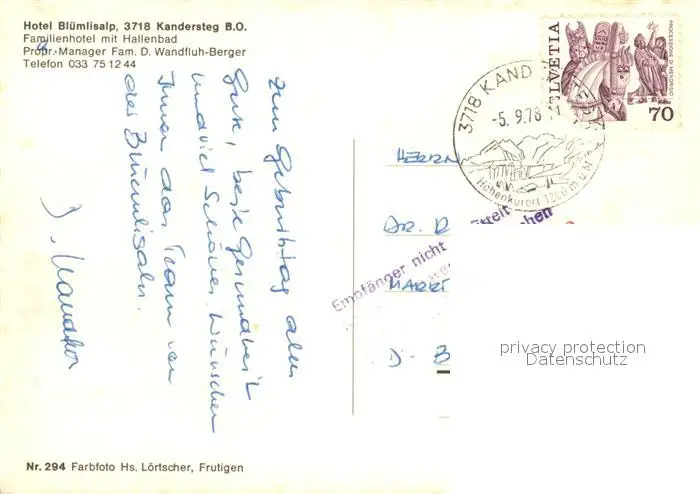 Hotel Blümlisalp, 3718 Kandersteg B.O.
Familienhotel mit Hallenbad
Propr.-Manager Fam. D. Wandfluh-Berger
Telefon 033 75 12 44
Zum Geburtstag alles
Gute, beste Gesundheit
und viel Schönes wünschen
Ihnen das Team von
der Blümlisalp.
HELVETIA
70
3718 KAND
-5. 9.78
Höhenkurort 1200 m ü. M.
HERRN
DR. D
MARKT
D - B
Empfänger nicht
privacy protection
Datenschutz
Nr. 294 Farbfoto Hs. Lörtscher, Frutigen